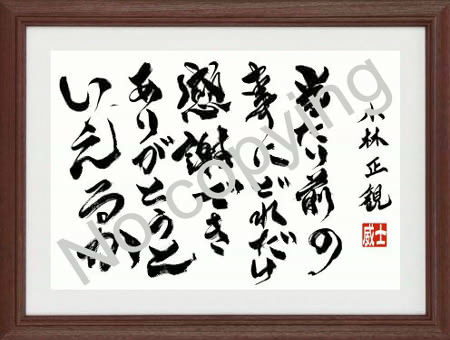 小林正観
当たり前の
事にどれだけ
感謝でき
ありがとうと
いえるか
威士
No copying